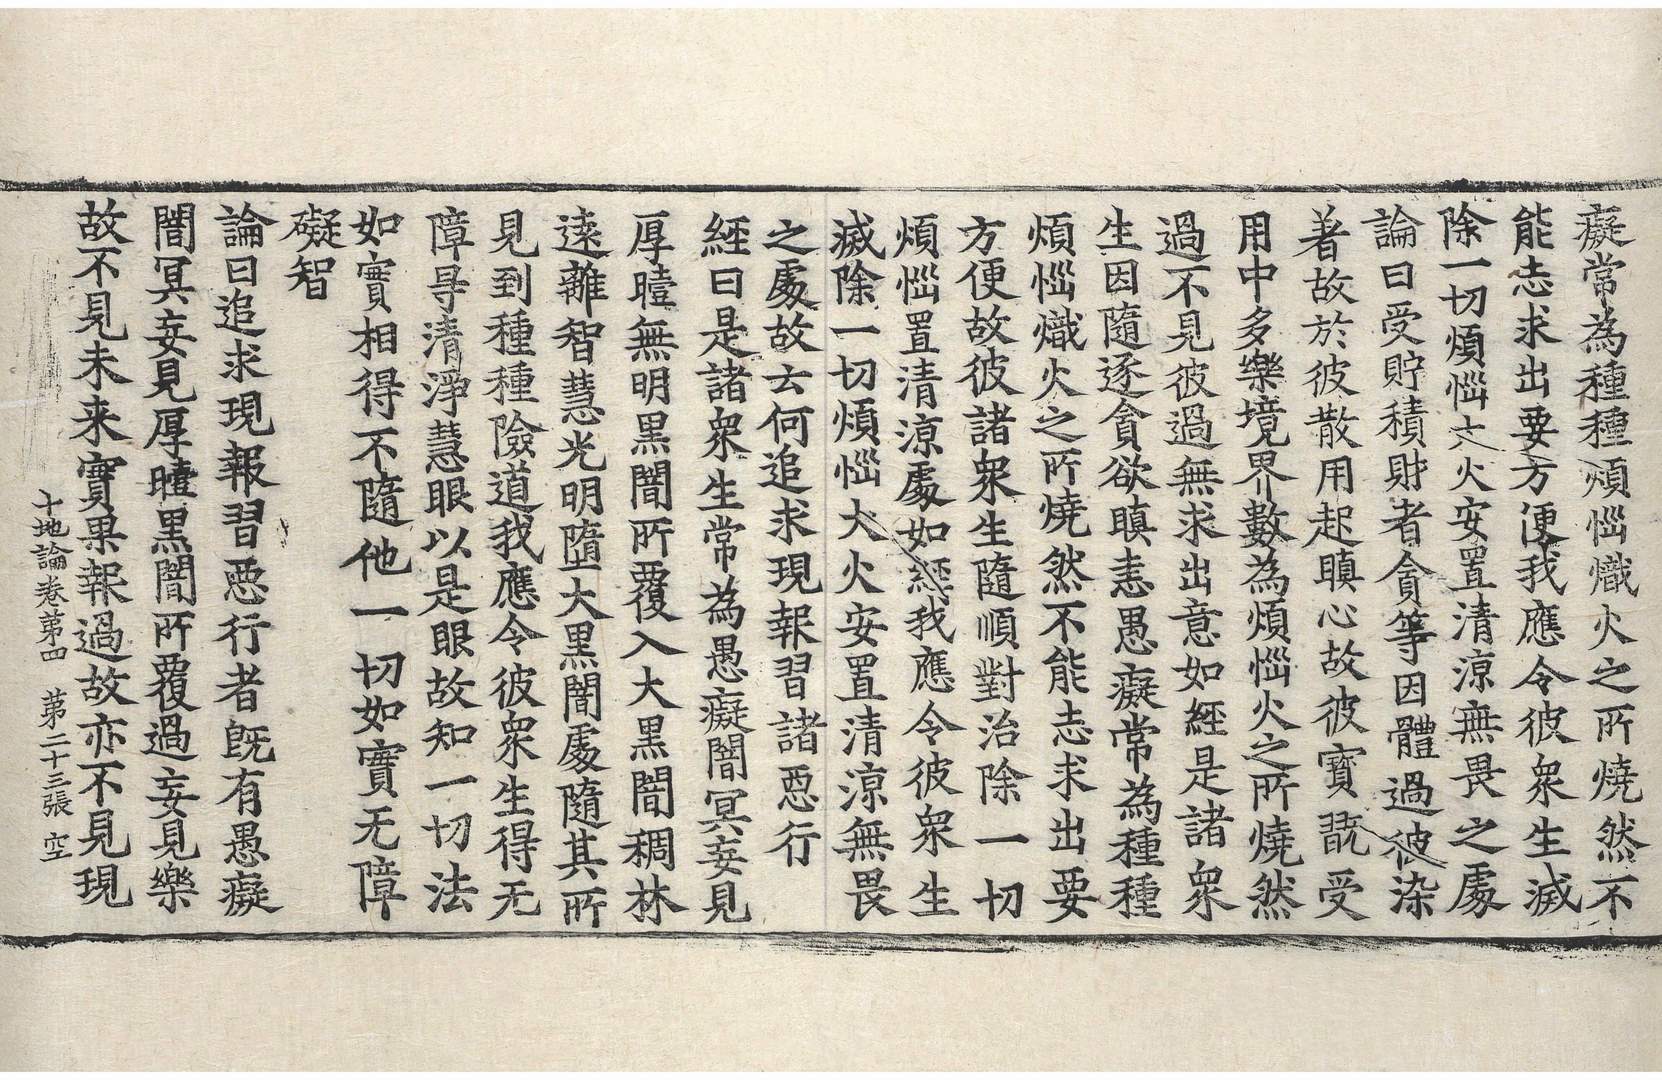 癡常為種種煩惱熾火之所燒然不
能志求出要方便我應令彼衆生滅
除一切煩惱大火安置清涼無畏之處
論曰受貯積財者貪等因體過彼染
著故於彼散用起瞋心故彼寶翫受
用中多樂境界數為煩惱火之所燒然
過不見彼過無求出意如經是諸衆
生因隨逐貪欲瞋恚愚癡常為種種
煩惱熾火之所燒然不能志求出要
方便故彼諸衆生隨順對治除一切
煩惱置清涼處如經我應令彼衆生
滅除一切煩惱大火安置清涼無畏
之處故云何追求現報習諸惡行
經曰是諸衆生常為愚癡闇冥妄見
厚曀無明黑闇所覆入大黑闇稠林
遠離智慧光明墮大黑闇處隨其所
見到種種險道我應令彼衆生得无
障㝵清淨慧眼以是眼故知一切法
如實相得不隨他一切如實无障
礙智
論曰追求現報習惡行者旣有愚癡
闇冥妄見厚曀黑闇所覆過妄見樂
故不見未来實果報過故亦不見現
十地論卷第四 第二十三張 空